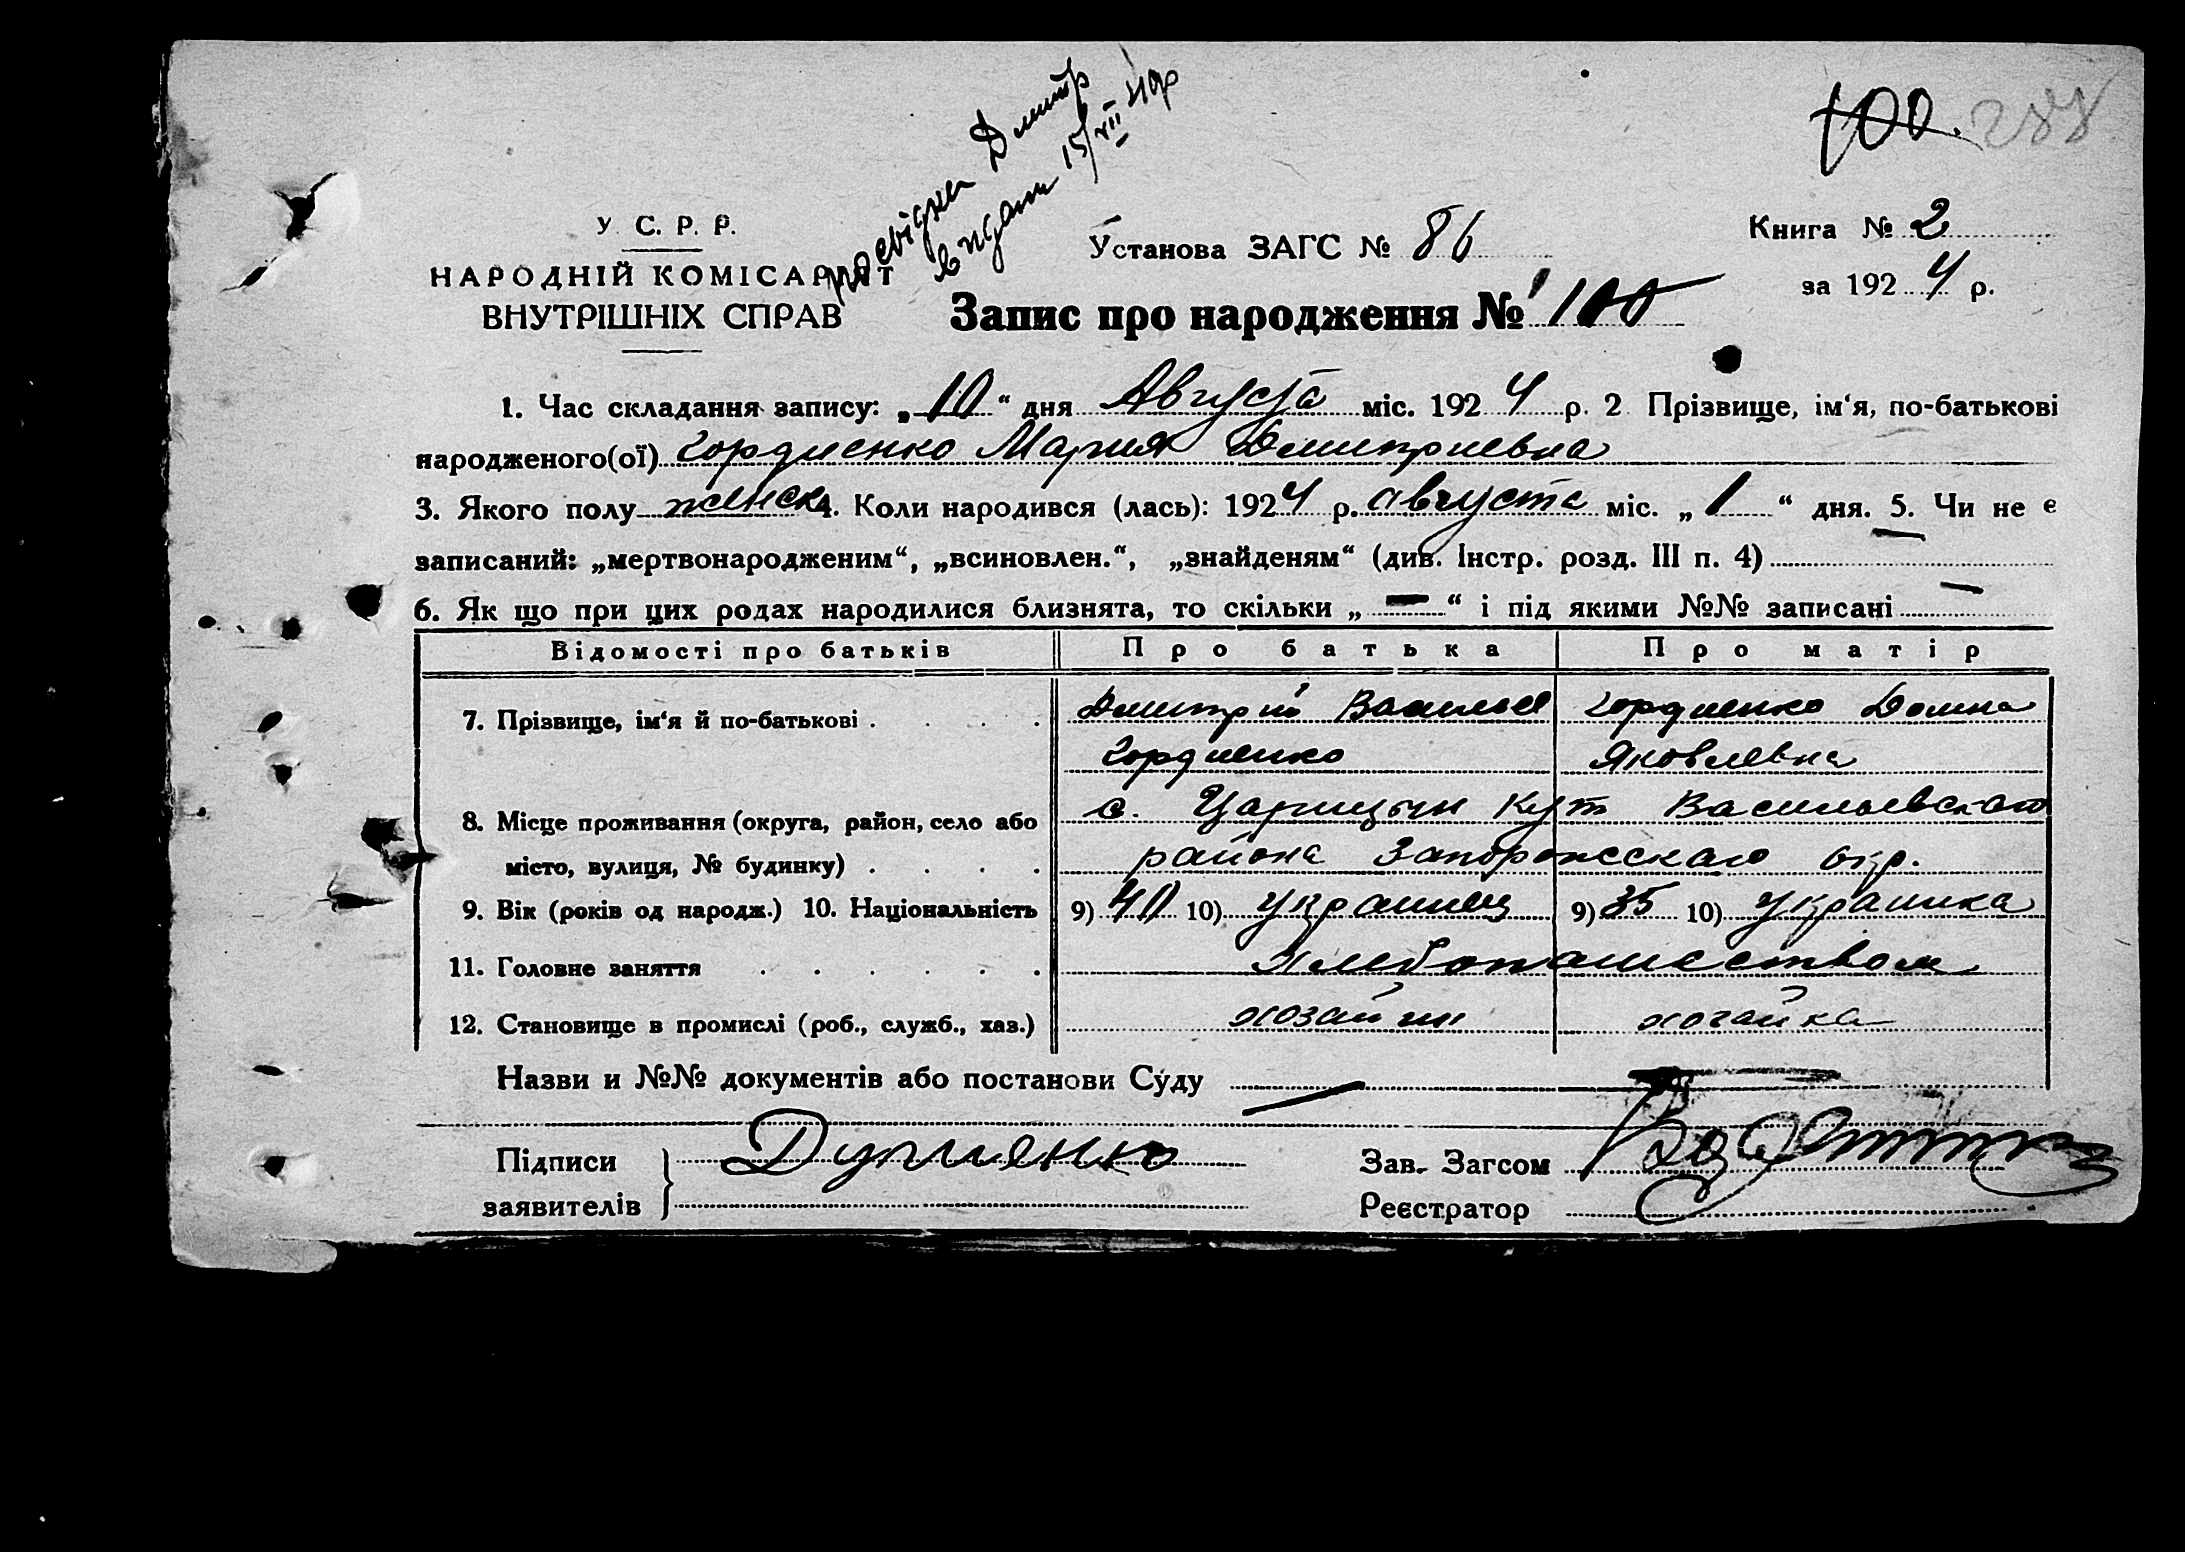 100. 288
У. С. Р. Р.
НАРОДНІЙ КОМІСАРІАТ
ВНУТРІШНІХ СПРАВ
посвідка Дмитр
видан 15/VII
Установа ЗАГС № 86
Книга № 2
за 1924 р.
Запис про народження № 100
1. Час складання запису: „10“ дня Августа міс. 1924 р. 2 Прізвище, ім‘я, по-батькові
народженого(ої) Гордиенко Мария Дмитриевна
3. Якого полу женск 4. Коли народився (лась): 1924 р. августа міс. „1“ дня. 5. Чи не є
записаний: „мертвонародженим“, „всиновлен.“, „знайденям“ (див. Інстр. розд. III п. 4) —
6. Як що при цих родах народилися близнята, то скільки „—“ і під якими №№ записані —
Відомості про батьків Про батька Про матір
7. Прізвище, ім‘я й по-батькові . . . . Дмитрий Васильев Гордиенко Домна
Гордиенко Яковлевна
8. Місце проживання (округа, район, село або с. Царицын Кут Васильевскаго
місто, вулиця, № будинку) . . . . района Запорожскаго окр.
9. Вік (років од народж.) 10. Національність 9) 40 10) Украинец 9) 35 10) Украинка
11. Головне заняття . . . . . . Хлебопашеством
12. Становище в промислі (роб., служб., хаз.) хозайин хозайка
Назви и №№ документів або постанови Суду —
Підписи
заявителів
Зав. Загсом
Реєстратор